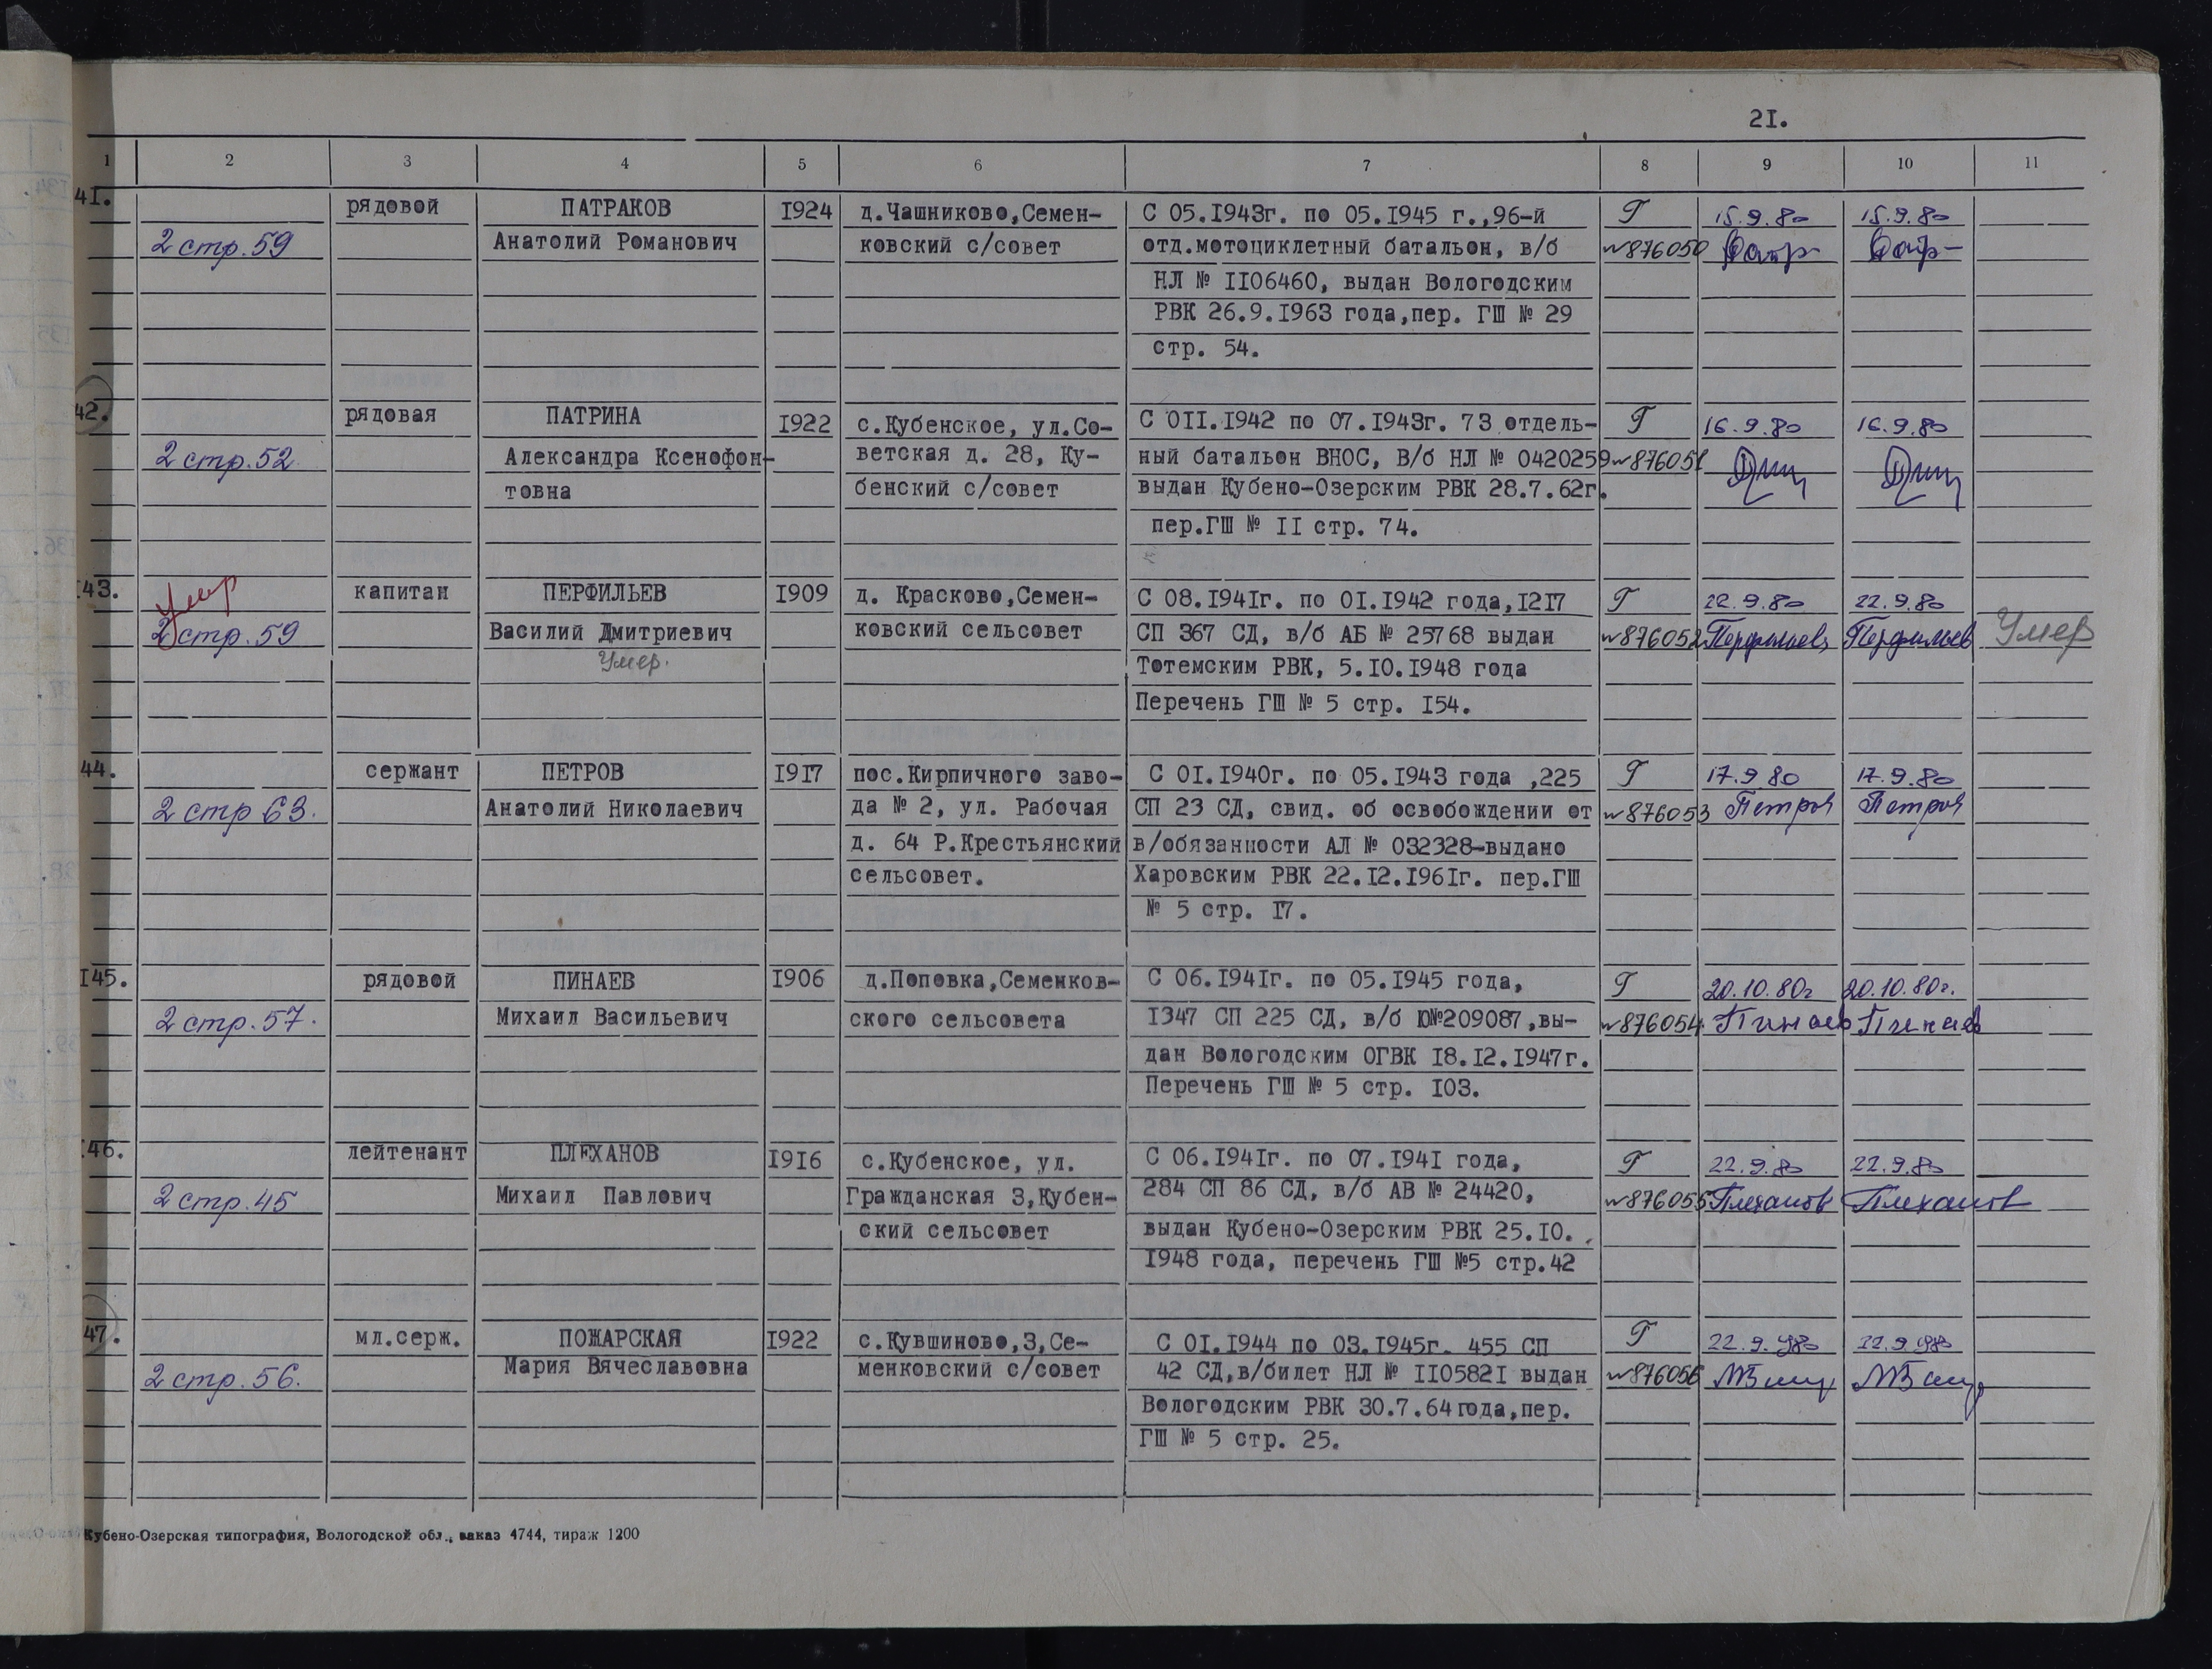 2I.
1 2 3 4 5 6 7 8 9 10 11
4I. рядовой ПАТРАКОВ I924 д.Чашниково,Семен- С 05.I943г. по 05.I945 г.,96-й Г 15.9.80 15.9.80
2 стр.59 Анатолий Романович ковский с/совет отд.мотоциклетный батальон, в/б №876050
НЛ № II06460, выдан Вологодским
РВК 26.9.I963 года,пер. ГШ № 29
стр. 54.
42. рядовая ПАТРИНА I922 с.Кубенское, ул.Со- С 0II.I942 по 07.I943г. 73 отдель- Г 16.9.80 16.9.80
2 стр.52 Александра Ксенофон- ветская д. 28, Ку- ный батальон ВНОС, В/б НЛ № 0420259 №876051
товна бенский с/совет выдан Кубено-Озерским РВК 28.7.62г.
пер.ГШ № II стр. 74.
I43. Умер капитан ПЕРФИЛЬЕВ I909 д. Красково,Семен- С 08.I94Iг. по 0I.I942 года,I2I7 Г 22.9.80 22.9.80
2 стр.59 Василий Дмитриевич ковский сельсовет СП 367 СД, в/б АБ № 25768 выдан №876052 Перфильев Перфильев Умер
Умер. Тотемским РВК, 5.I0.I948 года
Перечень ГШ № 5 стр. I54.
44. сержант ПЕТРОВ I9I7 пос.Кирпичного заво- С 0I.I940г. по 05.I943 года ,225 Г 17.9.80 17.9.80
2 стр 63. Анатолий Николаевич да № 2, ул. Рабочая СП 23 СД, свид. об освобождении от №876053 Петров Петров
д. 64 Р.Крестьянский в/обязанности АЛ № 032328-выдано
сельсовет. Харовским РВК 22.I2.I96Iг. пер.ГШ
№ 5 стр. I7.
I45. рядовой ПИНАЕВ I906 д.Поповка,Семенков- С 06.I94Iг. по 05.I945 года, Г 20.10.80г 20.10.80г.
2 стр.57. Михаил Васильевич ского сельсовета I347 СП 225 СД, в/б Ю№209087,вы- №876054 Пинаев Пинаев
дан Вологодским ОГВК I8.I2.I947г.
Перечень ГШ № 5 стр. I03.
46. лейтенант ПЛЕХАНОВ I9I6 с.Кубенское, ул. С 06.I94Iг. по 07.I94I года, Г 22.9.80 22.9.80
2 стр.45 Михаил Павлович Гражданская 3,Кубен- 284 СП 86 СД, в/б АВ № 24420, №876055 Плеханов Плеханов
ский сельсовет выдан Кубено-Озерским РВК 25.I0.
I948 года, перечень ГШ №5 стр.42
47. мл.серж. ПОЖАРСКАЯ I922 с.Кувшиново,3,Се- С 0I.I944 по 03.I945г. 455 СП Г 22.9.1980 22.9.1980
2 стр.56. Мария Вячеславовна менковский с/совет 42 СД,в/билет НЛ № II0582I выдан №876056
Вологодским РВК 30.7.64года,пер.
ГШ № 5 стр. 25.
Кубено-Озерская типография, Вологодской обл., заказ 4744, тираж 1200